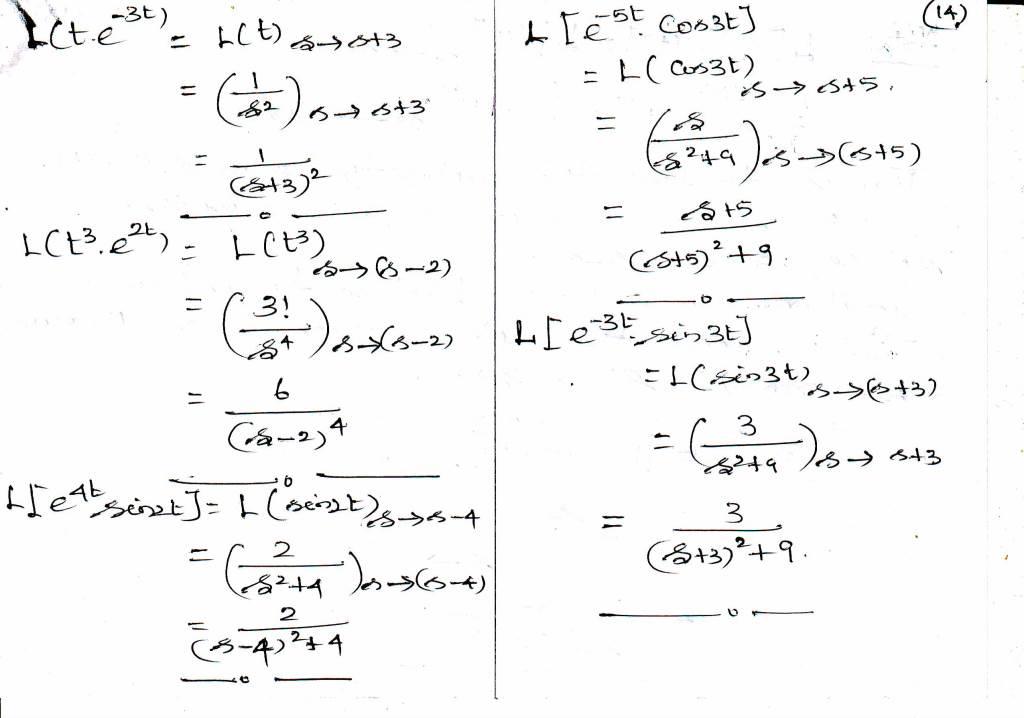 L(t.e^{-3t}) = L(t)_{s→s+3}
= (1/s²)_{s→s+3}
= 1/(s+3)²
L(t³.e^{2t}) = L(t³)_{s→(s-2)}
= (3!/s⁴)_{s→(s-2)}
= 6/(s-2)⁴
L[e^{4t}sin2t] = L(sin2t)_{s→s-4}
= (2/s²+4)_{s→(s-4)}
= 2/(s-4)²+4
(14)
L[e^{-5t}. Cos3t]
= L(Cos3t)_{s→s+5}.
= (s/s²+9)_{s→(s+5)}
= s+5/(s+5)²+9.
L[e^{-3t}.sin3t]
= L(sin3t)_{s→(s+3)}
= (3/s²+9)_{s→s+3}
= 3/(s+3)²+9.